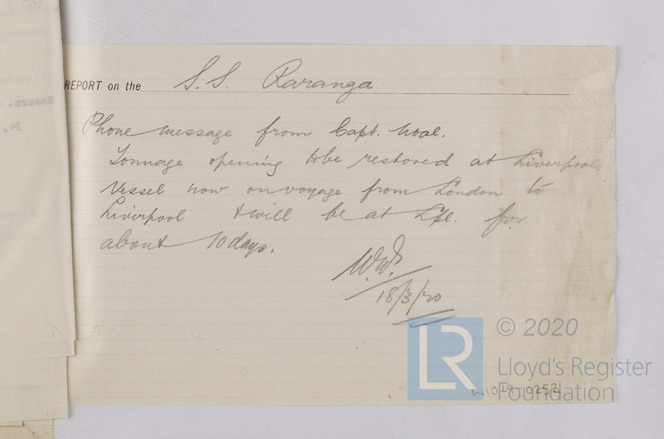 REPORT on the S.S. Raranga
Phone message from Capt. Noal.
Tonnage opening to be restored at Liverpool.
Vessel now on voyage from London to
Liverpool & will be at Lpl. for
about 10 days.
18/3/20
LR © 2020
Lloyd's Register
Foundation
W1019-0252